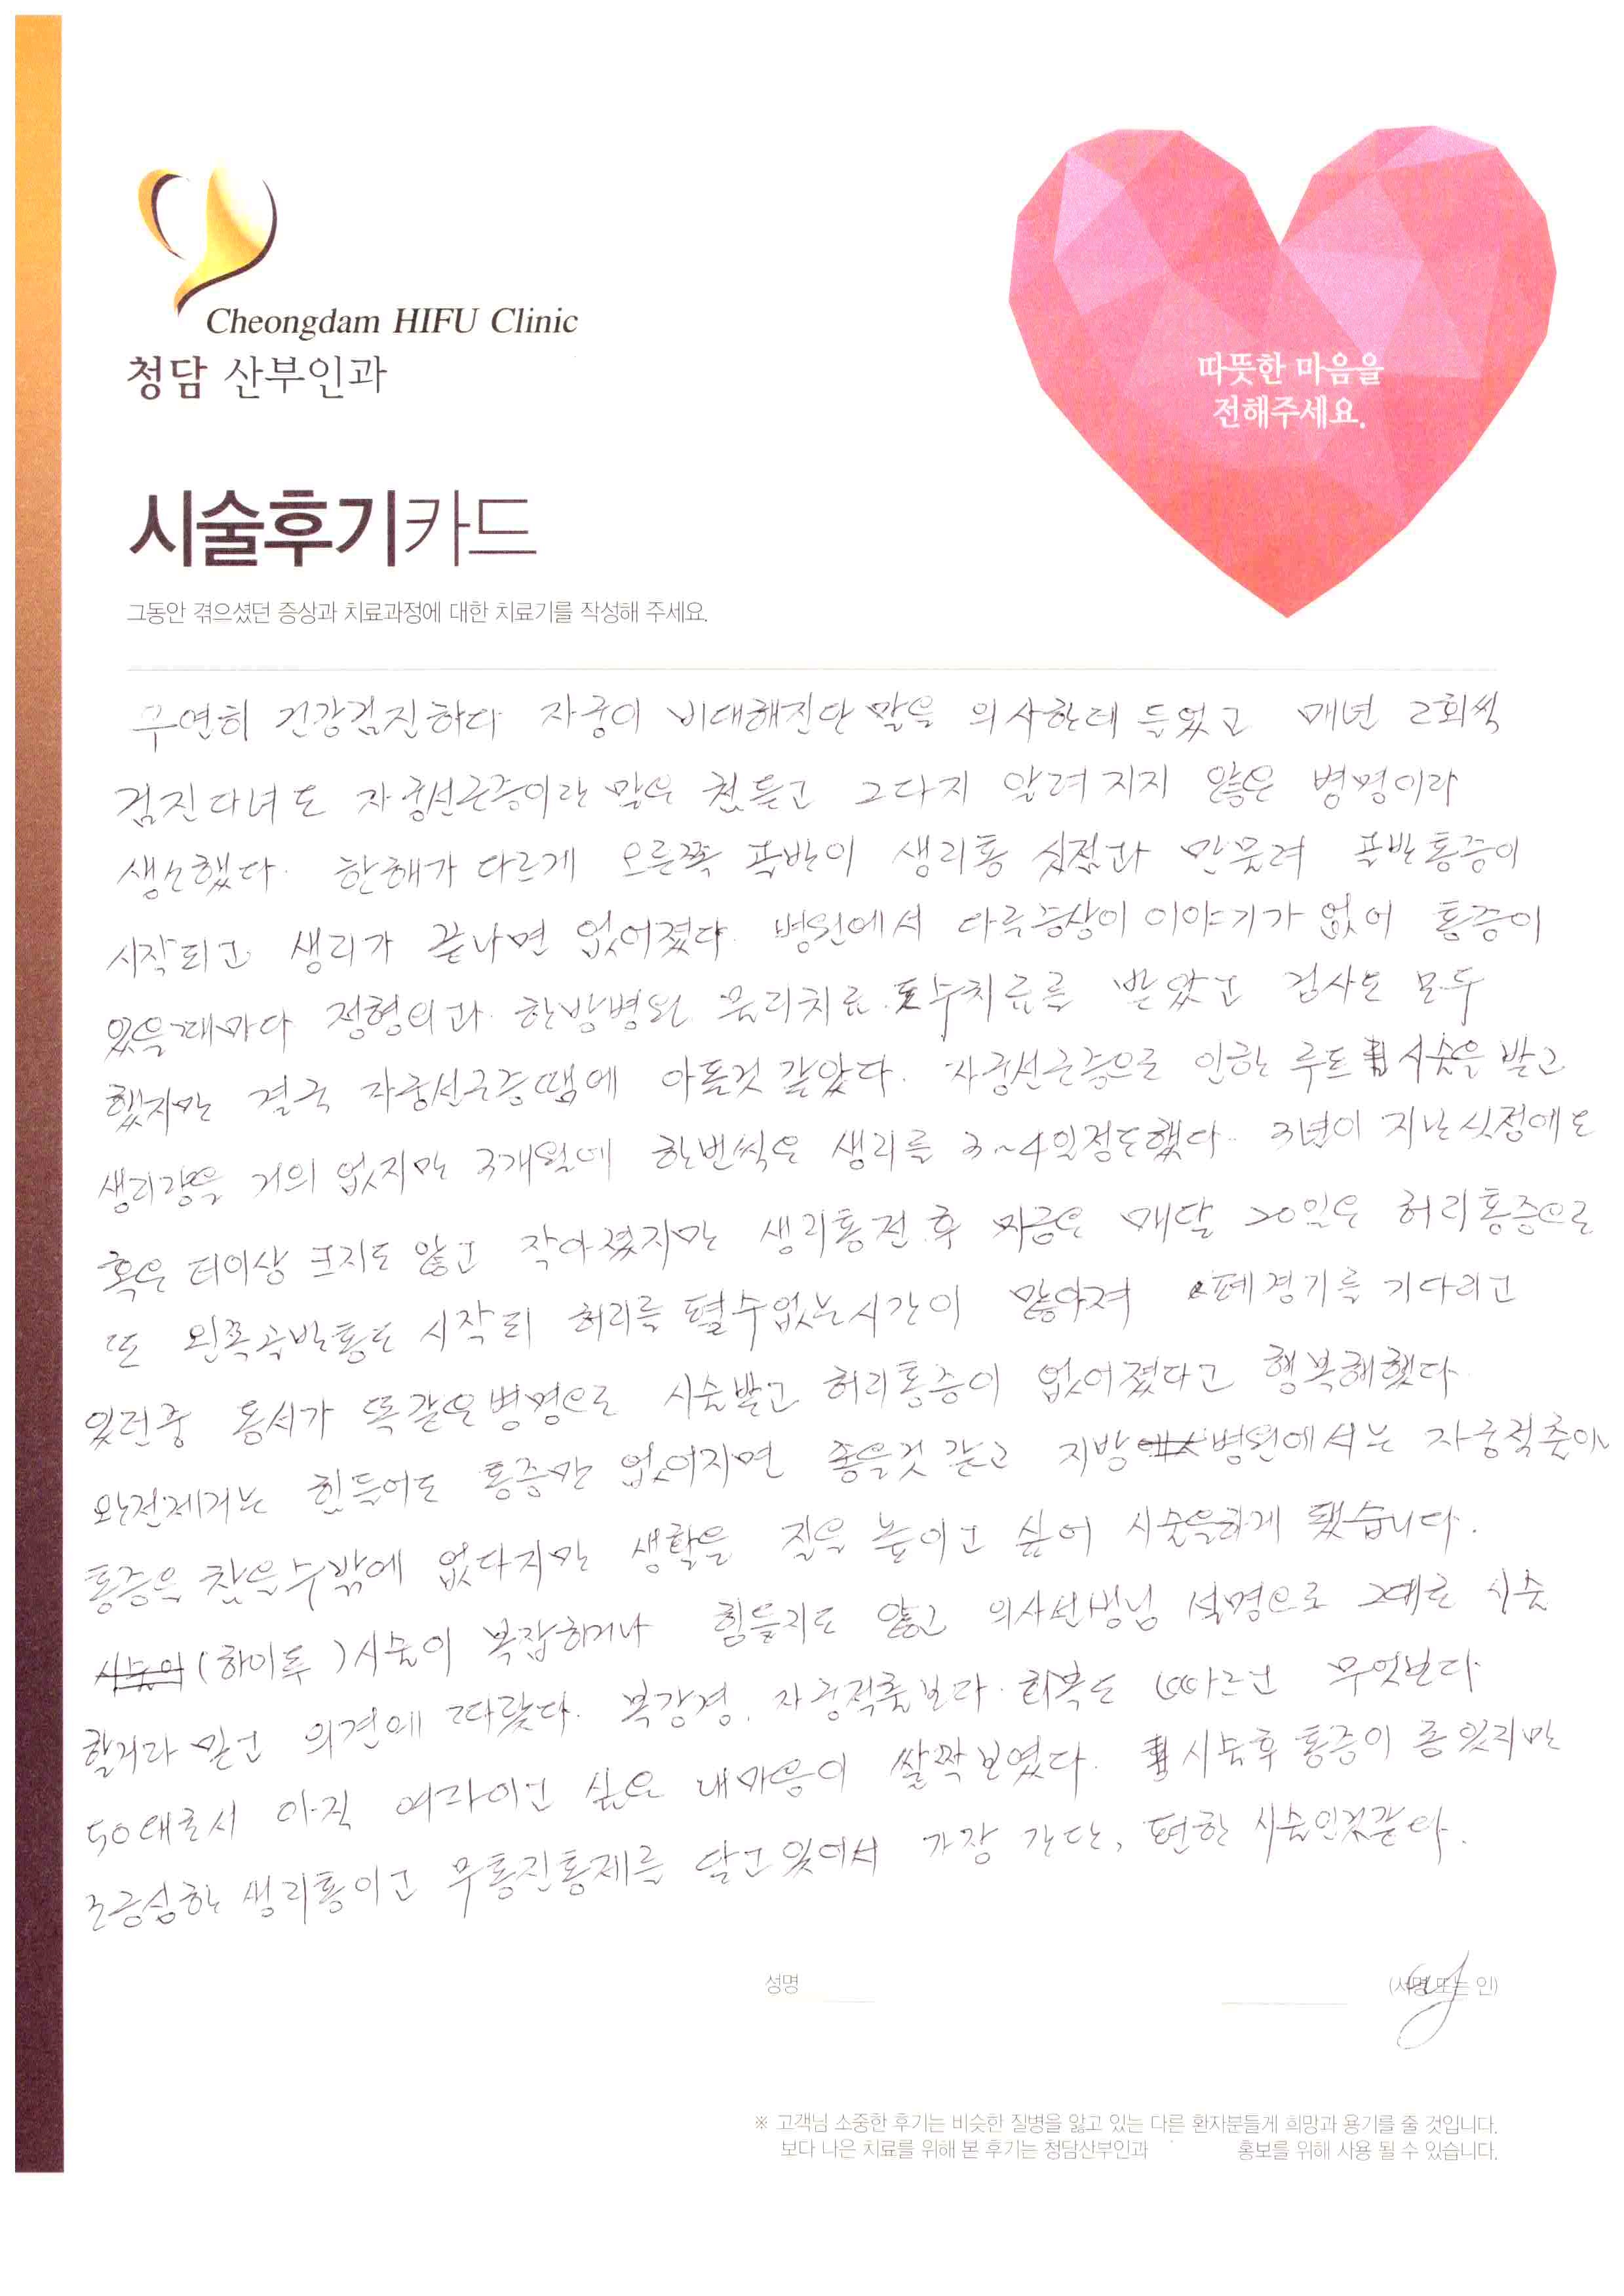 Cheongdam HIFU Clinic
청담 산부인과
따뜻한 마음을
전해주세요.
시술후기카드
그동안 겪으셨던 증상과 치료과정에 대한 치료기를 작성해 주세요.
우연히 건강검진하다 자궁이 비대해진단 말을 의사한테 들었고 매년 2회씩
검진다녀도 자궁선근증이란 말은 첨듣고 그다지 알려지지 않은 병명이라
생소했다. 한해가 다르게 오른쪽 골반이 생리통 싯점과 맞물려 골반통증이
시작되고 생리가 끝나면 없어졌다. 병원에서 다른증상이 이야기가 없어 통증이
있을때마다 정형외과. 한방병원. 물리치료. 도수치료를 받았고 검사도 모두
했지만 결국 자궁선근증땜에 아픈것 같았다. 자궁선근증으로 인한 루프 시술을 받고
생리량은 거의 없지만 3개월에 한번씩은 생리를 3~4일정도했다.. 3년이 지난싯점에도
혹은 더이상 크지도 않고 작아졌지만 생리통전.후 지금은 매달 20일은 허리통증으로
또 왼쪽골반통도 시작되 허리를 펼수없는시간이 많아져 폐경기를 기다리고
있던중 동서가 똑같은병명으로 시술받고 허리통증이 없어졌다고 행복해했다.
완전제거는 힘들어도 통증만 없어지면 좋을것 같고 지방 병원에서는 자궁적출이나
통증은 참을수밖에 없다지만 생활을 질을 높이고 싶어 시술을하게 됐습니다.
(하이푸)시술이 복잡하거나 힘들지도 않고 의사선생님 설명으로 그대로 시술
할거라 믿고 의견에 따랐다. 복강경. 자궁적출보다. 회복도 빠르고 무엇보다
50대로서 아직 여자이고 싶은 내마음이 살짝 보였다. 시술후 통증이 좀 있지만
조금심한 생리통이고 무통진통제를 달고있어서 가장 간단, 편한 시술인것같다.
성명
(서명 또는 인)
※ 고객님 소중한 후기는 비슷한 질병을 앓고 있는 다른 환자분들게 희망과 용기를 줄 것입니다.
보다 나은 치료를 위해 본 후기는 청담산부인과 홍보를 위해 사용 될 수 있습니다.